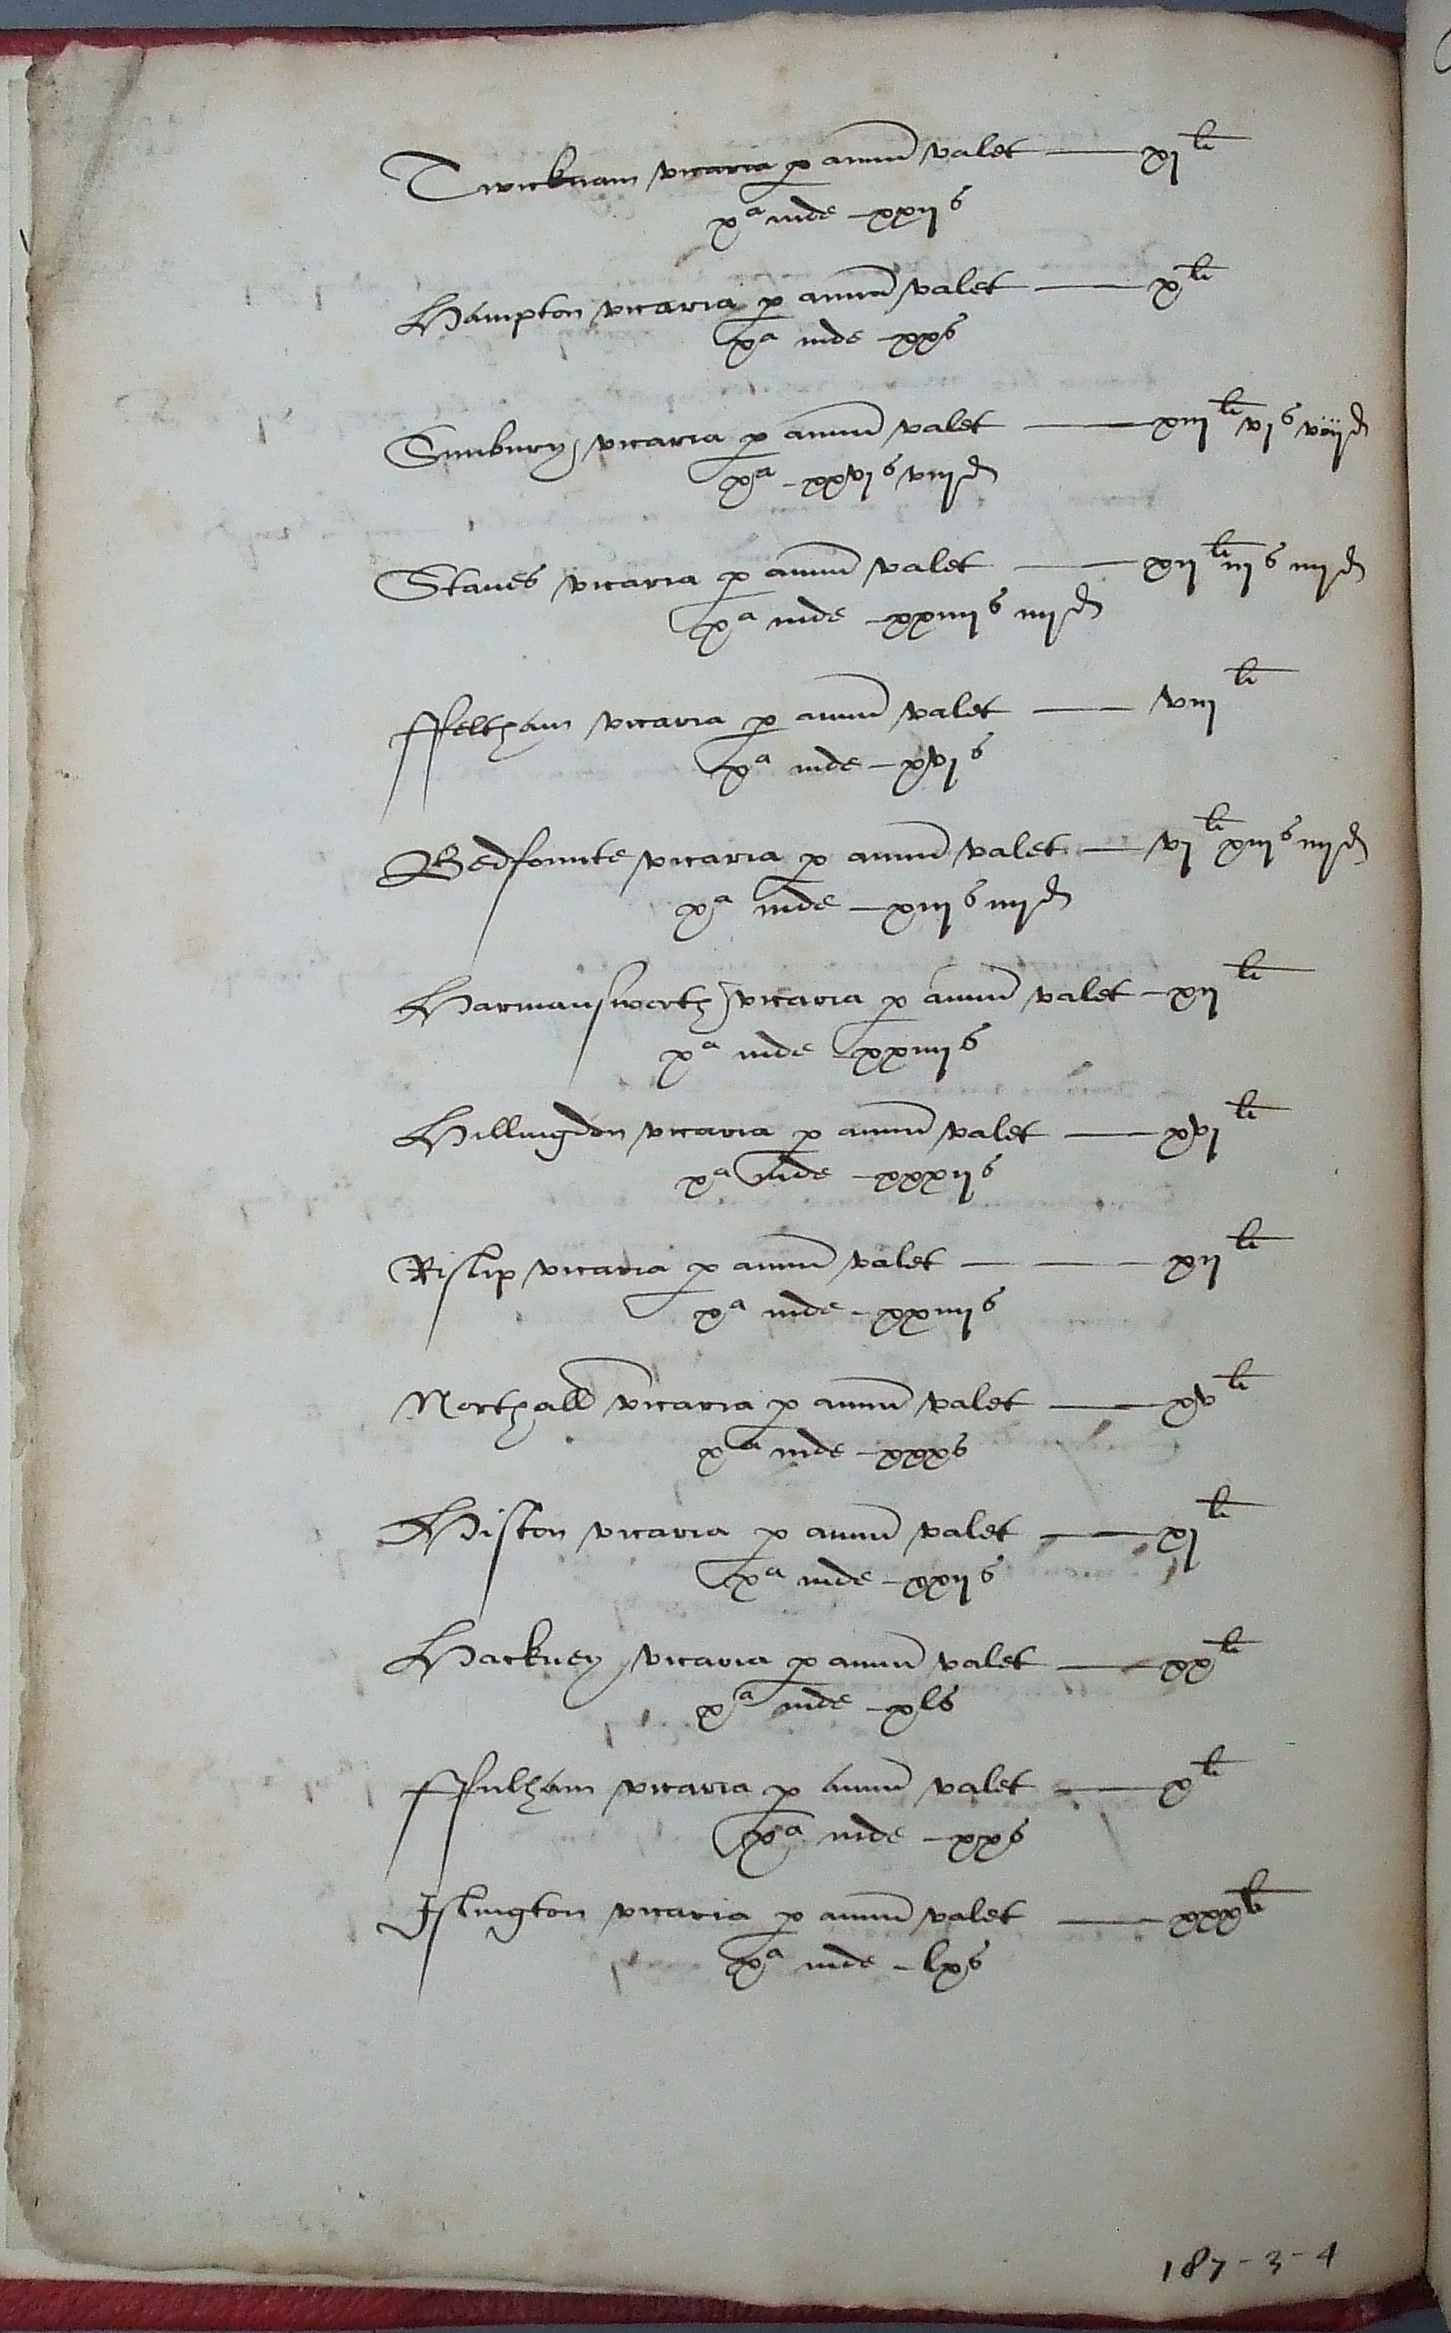 Twicknam vicaria p annū valet — xj li
xa inde – xxij s
Hampton vicaria p annū valet — x li
xa inde – xx s
Sunbury vicaria p annū valet — xiij li vj s viij d
xa – xxvj s viij d
Stanes vicaria p annū valet — xij li iij s iiij d
xa inde – xxiiij s iiij d
ffeltham vicaria p annū valet — viij li
xa inde – xvj s
Bedfounte vicaria p annū valet — vj li xiij s iiij d
xa inde – xiij s iiij d
Harmansworth vicaria p annū valet – xij li
xa inde – xxiiij s
Hillingdon vicaria p annū valet — xvj li
xa inde – xxxij s
Rislip vicaria p annū valet — — — xij li
xa inde – xxiiij s
Northall vicaria p annū valet — xv li
xa inde – xxx s
Histon vicaria p annū valet — xj li
xa inde – xxij s
Hackney vicaria p annū valet — xx li
xa inde – xl s
ffulham vicaria p annū valet — x li
xa inde – xx s
Islington vicaria p annū valet — xxx li
xa inde – lx s
187-3-4